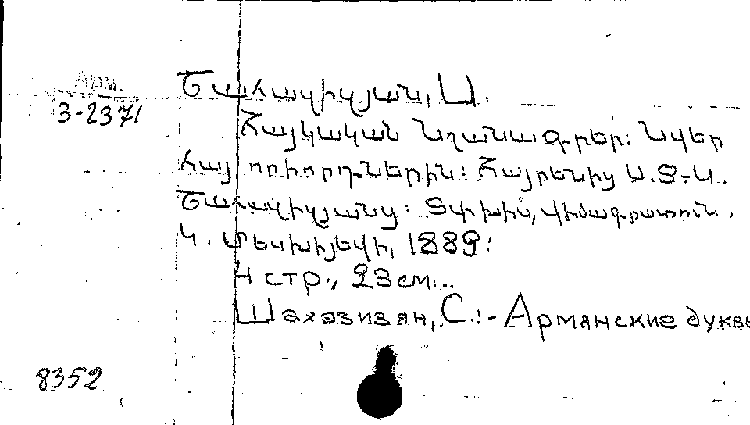 Арм.
3-2371
Շահազիզյան, Ս.
Հայկական նշանագրեր: Նվեր
հայ որբորդներին: Հայրենից Ս. Տ.-Ս.
Շահազիզյանց: Տփխիս, վիմագրատուն
Կ. Մեսխիյեվի, 1889:
4 стр., 23 см...
Шахазизян, С.: - Армянские буквы
8352